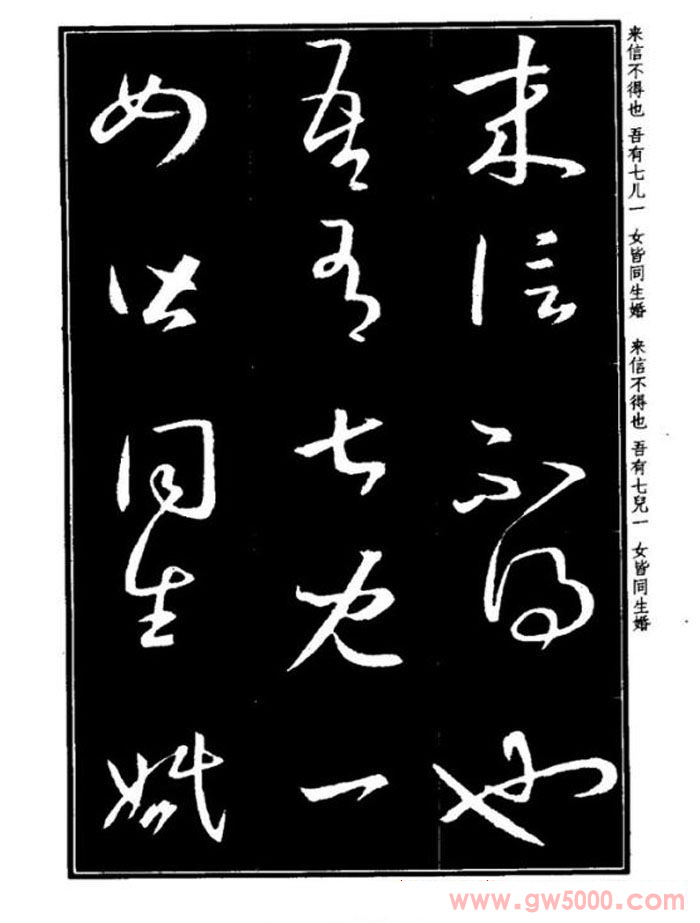 来信不得也
吾有七儿一
女皆同生婚
来信不得也 吾有七儿一 女皆同生婚
来信不得也 吾有七兒一 女皆同生婚
www.gw5000.com